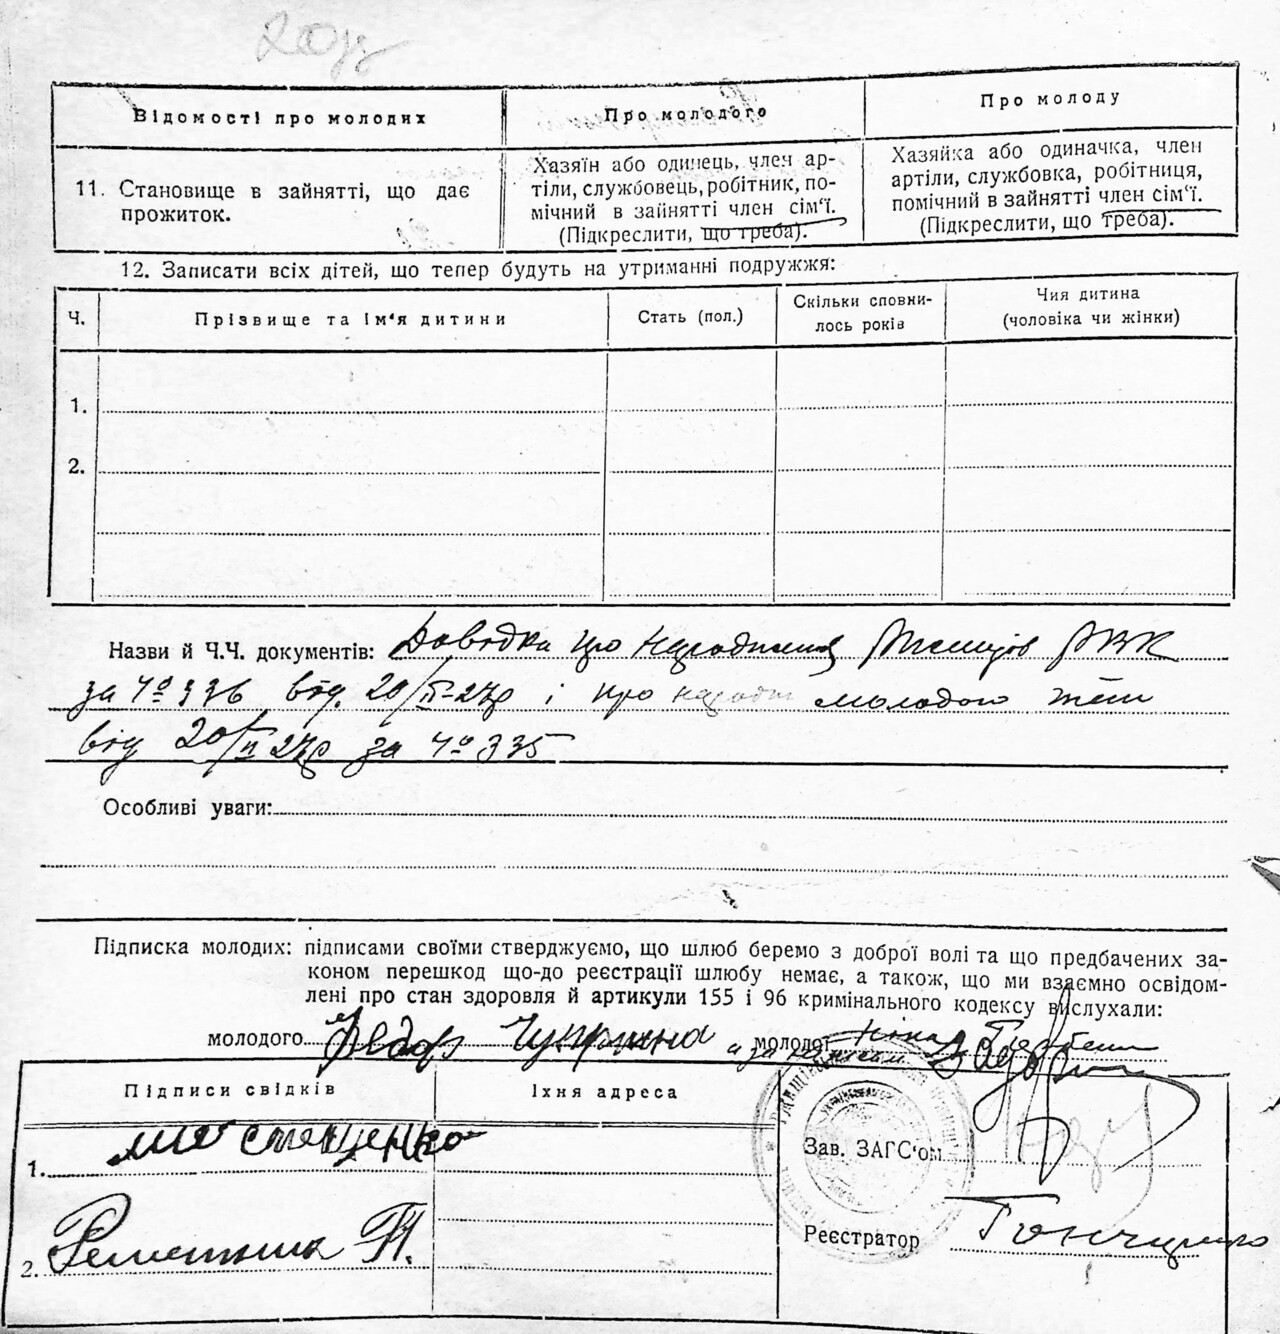 Відомості про молодих
Про молодого
Про молоду
11. Становище в зайнятті, що дає
прожиток.
Хазяїн або одинець, член ар-
тіли, службовець, робітник, по-
мічний в зайнятті член сім'ї.
(Підкреслити, що треба).
Хазяйка або одиначка, член
артіли, службовка, робітниця,
помічний в зайнятті член сім'ї.
(Підкреслити, що треба).
12. Записати всіх дітей, що тепер будуть на утриманні подружжя:
Ч.
Прізвище та ім'я дитини
Стать (пол.)
Скільки сповни-
лось років
Чия дитина
(чоловіка чи жінки)
1.
2.
Назви й Ч.Ч. документів: Довідка про народження РВК
за Чо 336 від. 20/II-27р і про молодого
від 20/II 27р за Чо 335
Особливі уваги:
Підписка молодих: підписами своїми стверджуємо, що шлюб беремо з доброї волі та що предбачених за-
коном перешкод що-до реєстрації шлюбу немає, а також, що ми взаємно освідом-
лені про стан здоровля й артикули 155 і 96 кримінального кодексу вислухали:
молодого Федор Чуприна молодої
Підписи свідків
Їхня адреса
1.
Зав. ЗАГС'ом
2. П.
Реєстратор